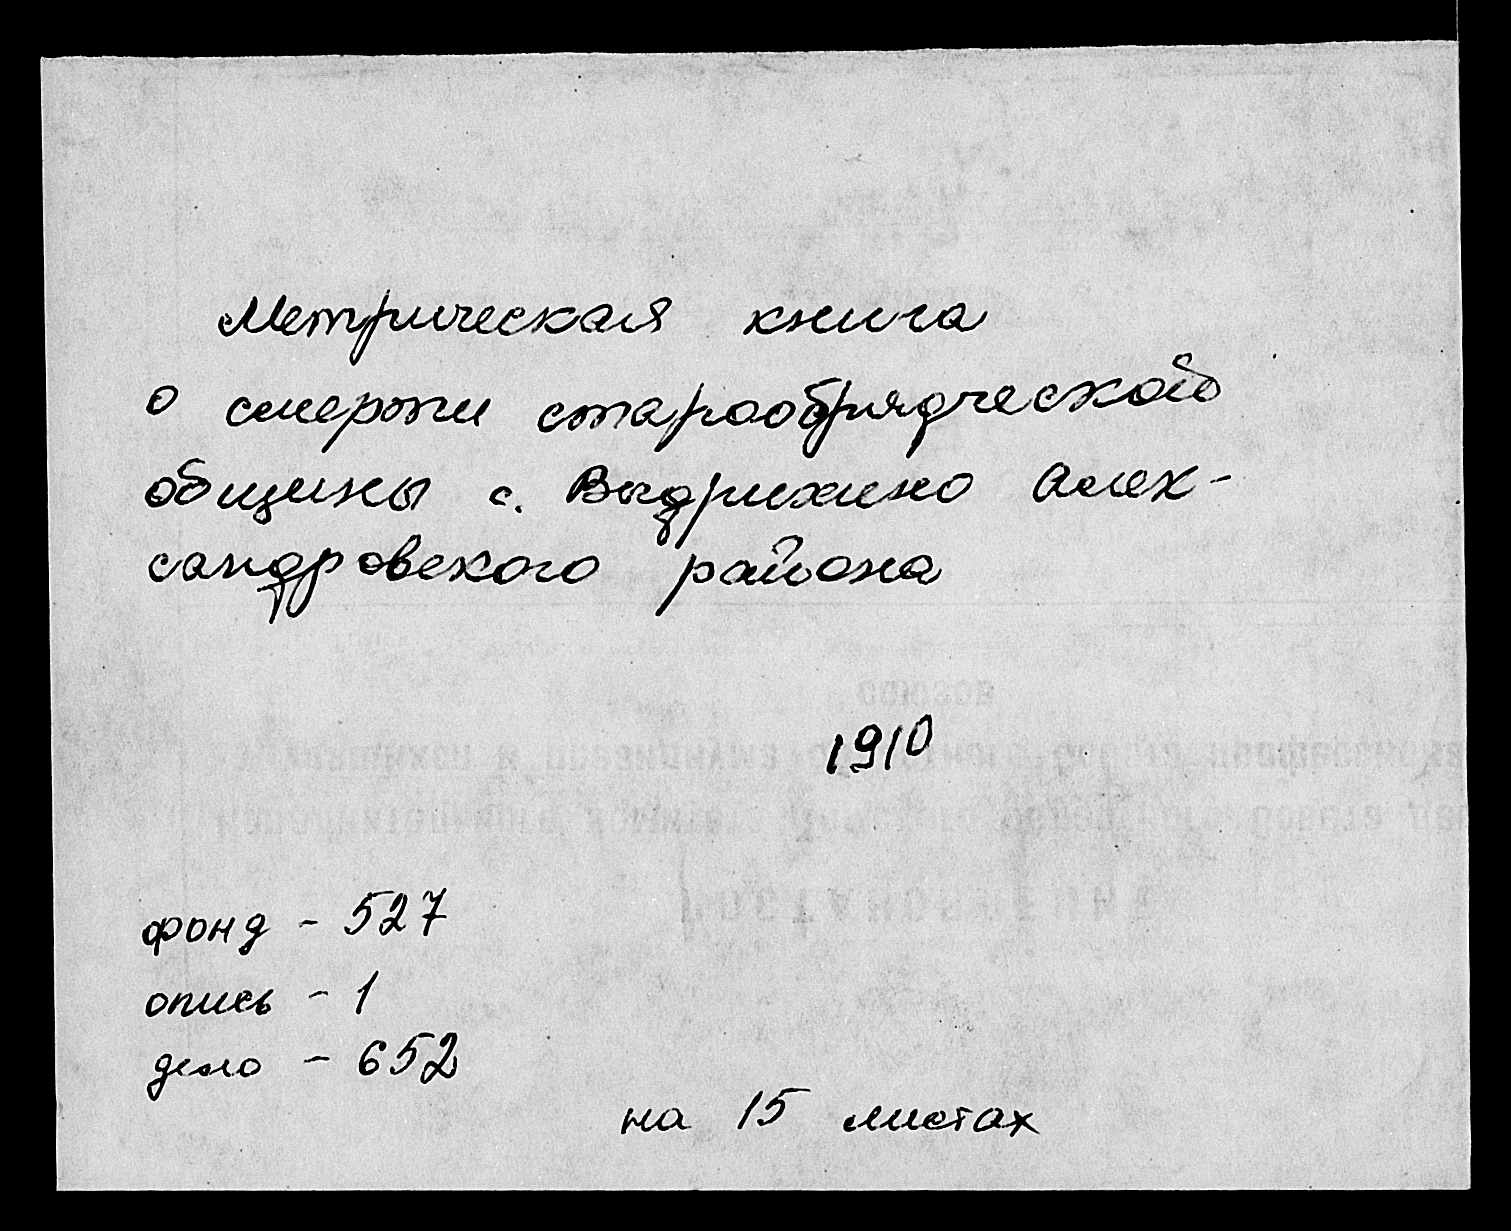 Метрическая книга
о смерти старообрядческой
общины с. Выдрихино Алек-
сандровского района
1910
фонд - 527
опись - 1
дело - 652
на 15 листах